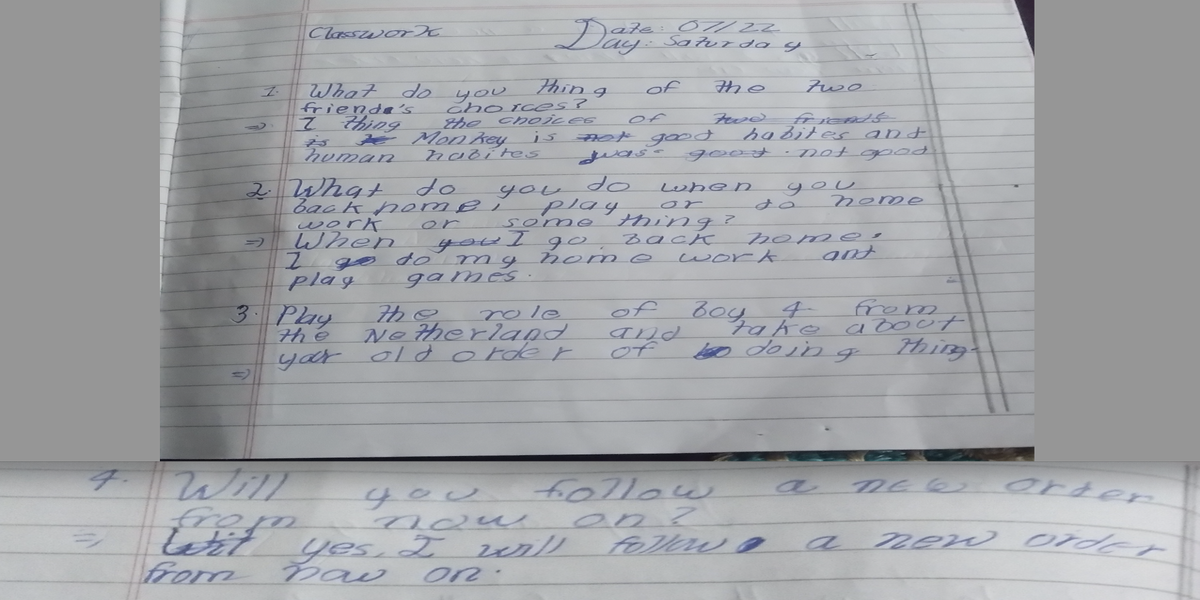 Classwork
Date: 07/22
Day: Saturday
1. What do you thing of the two
friends's choices?
=> I thing the choices of two friends
is Monkey is not good habites and
human habites was good not good
2. What do you do when you
back home, play or do home
work or some thing?
=> When you I go back home.
I go do my home work ant
play games.
3. Play the role of boy 4 from
the Netherland and take about
your old order of doing thing.
=>
4. Will you follow a new order
from now on?
=> yes, I will follow a new order
from now on.